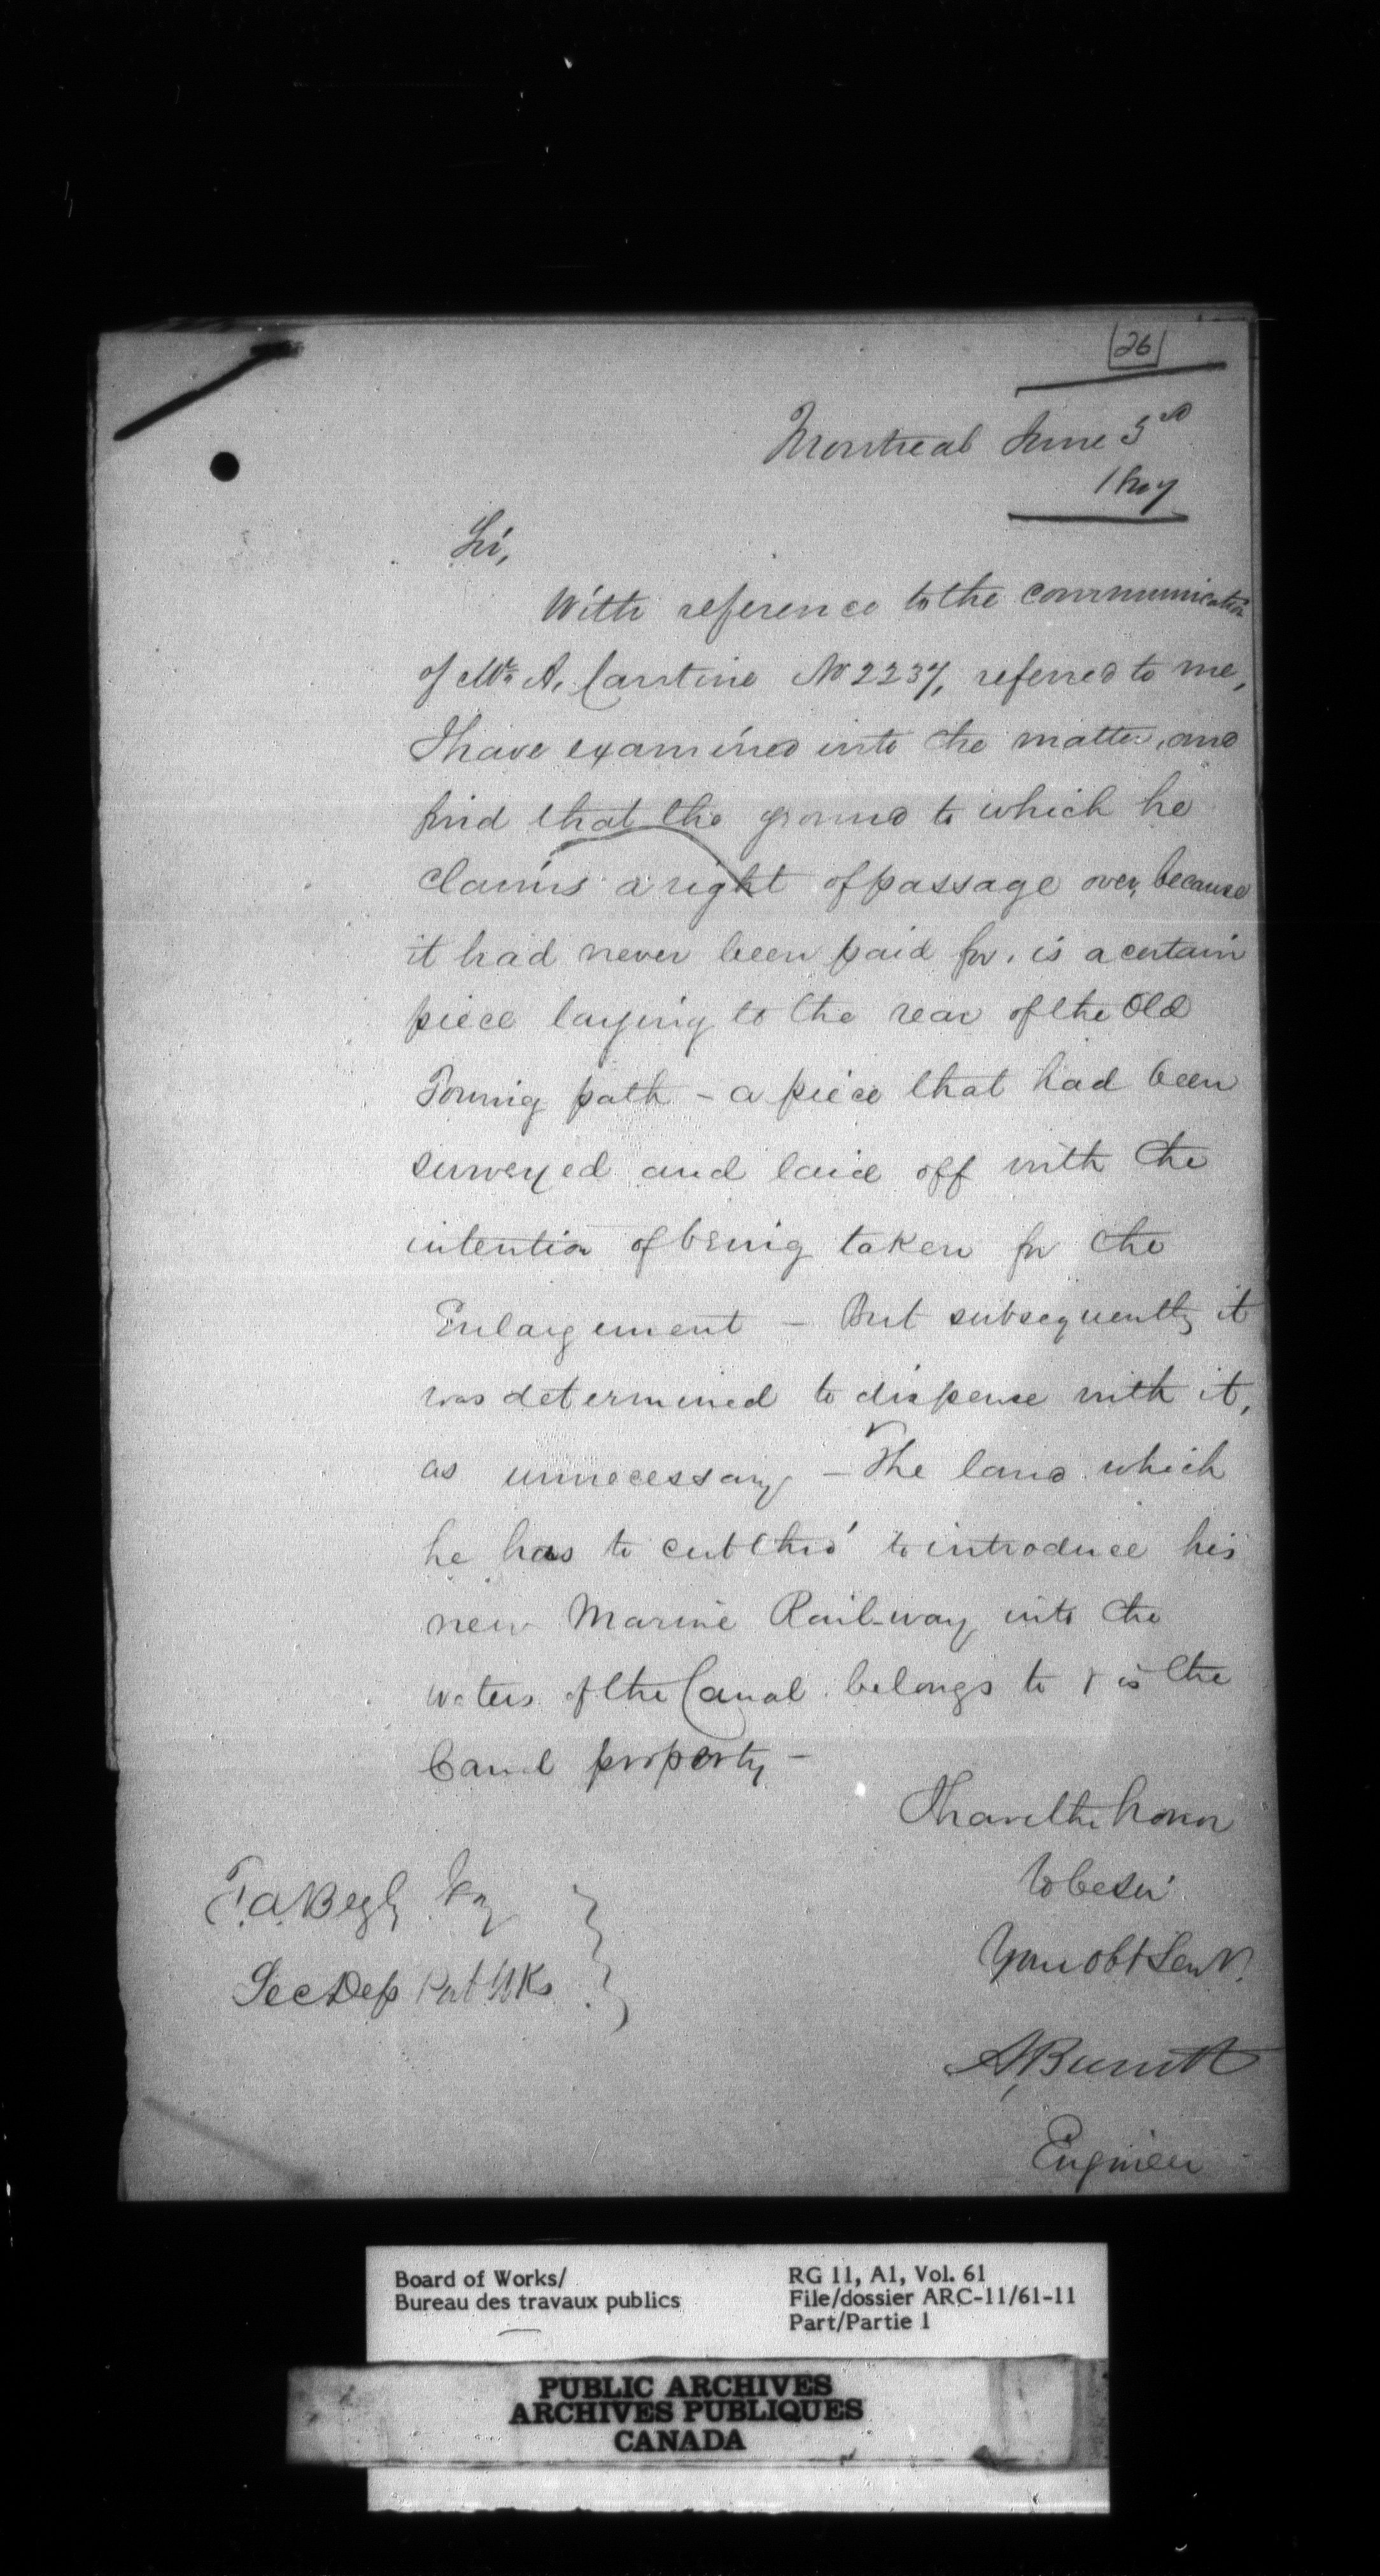 26
Montreal June 3rd
Sir,
With reference to the communication
of Mr. A. Cantine No 2237, referred to me,
I have examined into the matter, and
find that the ground to which he
claims a right of passage over, because
it had never been paid for, is a certain
piece laying to the rear of the Old
Towing path - a piece that had been
surveyed and laid off with the
intention of being taken for the
Enlargement - But subsequently it
was determined to dispense with it,
as unnecessary - The land which
he has to cut thro' to introduce his
new Marine Rail-way into the
waters of the Canal belongs to & is the
Canal property -
I have the honor
to be Sir
Your Obt Servt.
T. A. Begly Esq
Sec Dep Pub Wks
Engineer
Board of Works/
Bureau des travaux publics
RG 11, A1, Vol. 61
File/dossier ARC-11/61-11
Part/Partie 1
PUBLIC ARCHIVES
ARCHIVES PUBLIQUES
CANADA